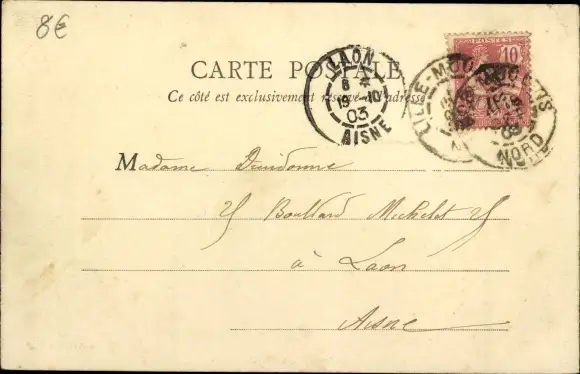 8€
CARTE POSTALE
Ce côté est exclusivement réservé à l'adresse
LAON
8
19-10
03
AISNE
POSTES
10
LILLE-MOULINS
NORD
Madame
25 Boullard Michelet 25
à Laon
Aisne